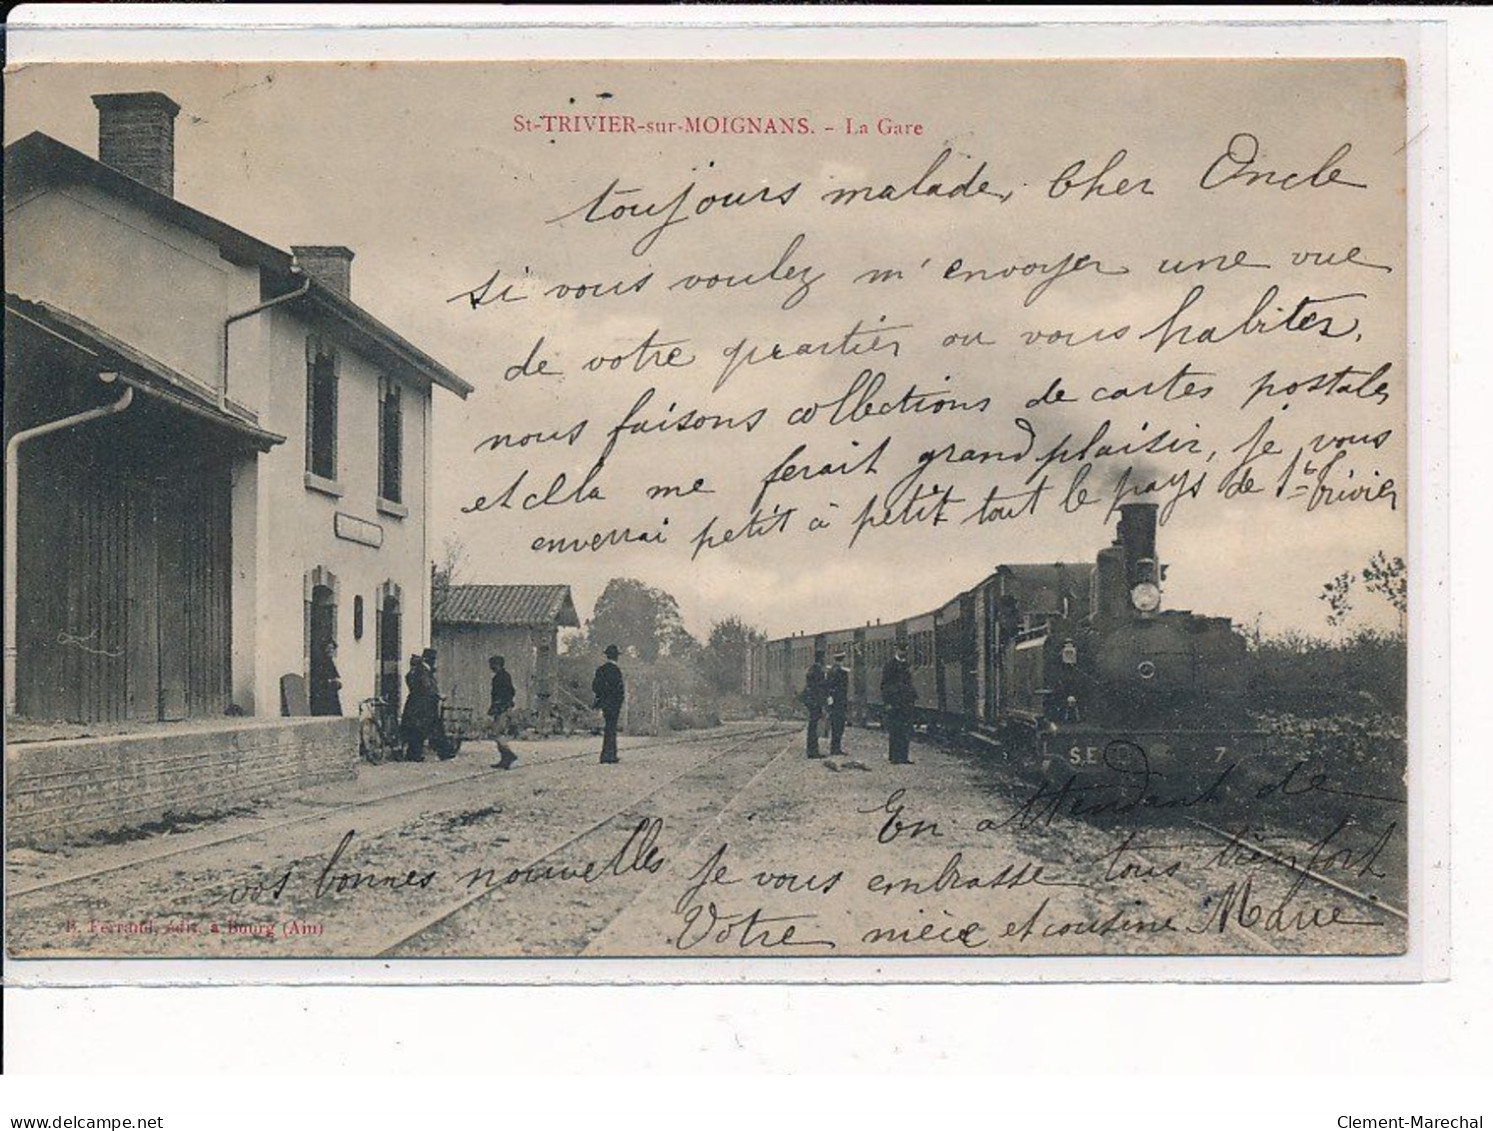 St-TRIVIER-sur-MOIGNANS. - La Gare
toujours malade, Cher Oncle
si vous voulez m'envoyer une vue
de votre quartier ou vous habitez,
nous faisons collections de cartes postales
et cela me ferait grand plaisir, je vous
enverrai petit à petit tout le pays de St Trivier
S.E 7
En attendant de
vos bonnes nouvelles je vous embrasse tous bien fort
Votre nièce et cousine Marie
B. Ferrand, édit. à Bourg (Ain)
delcampe.net
Clement-Marechal